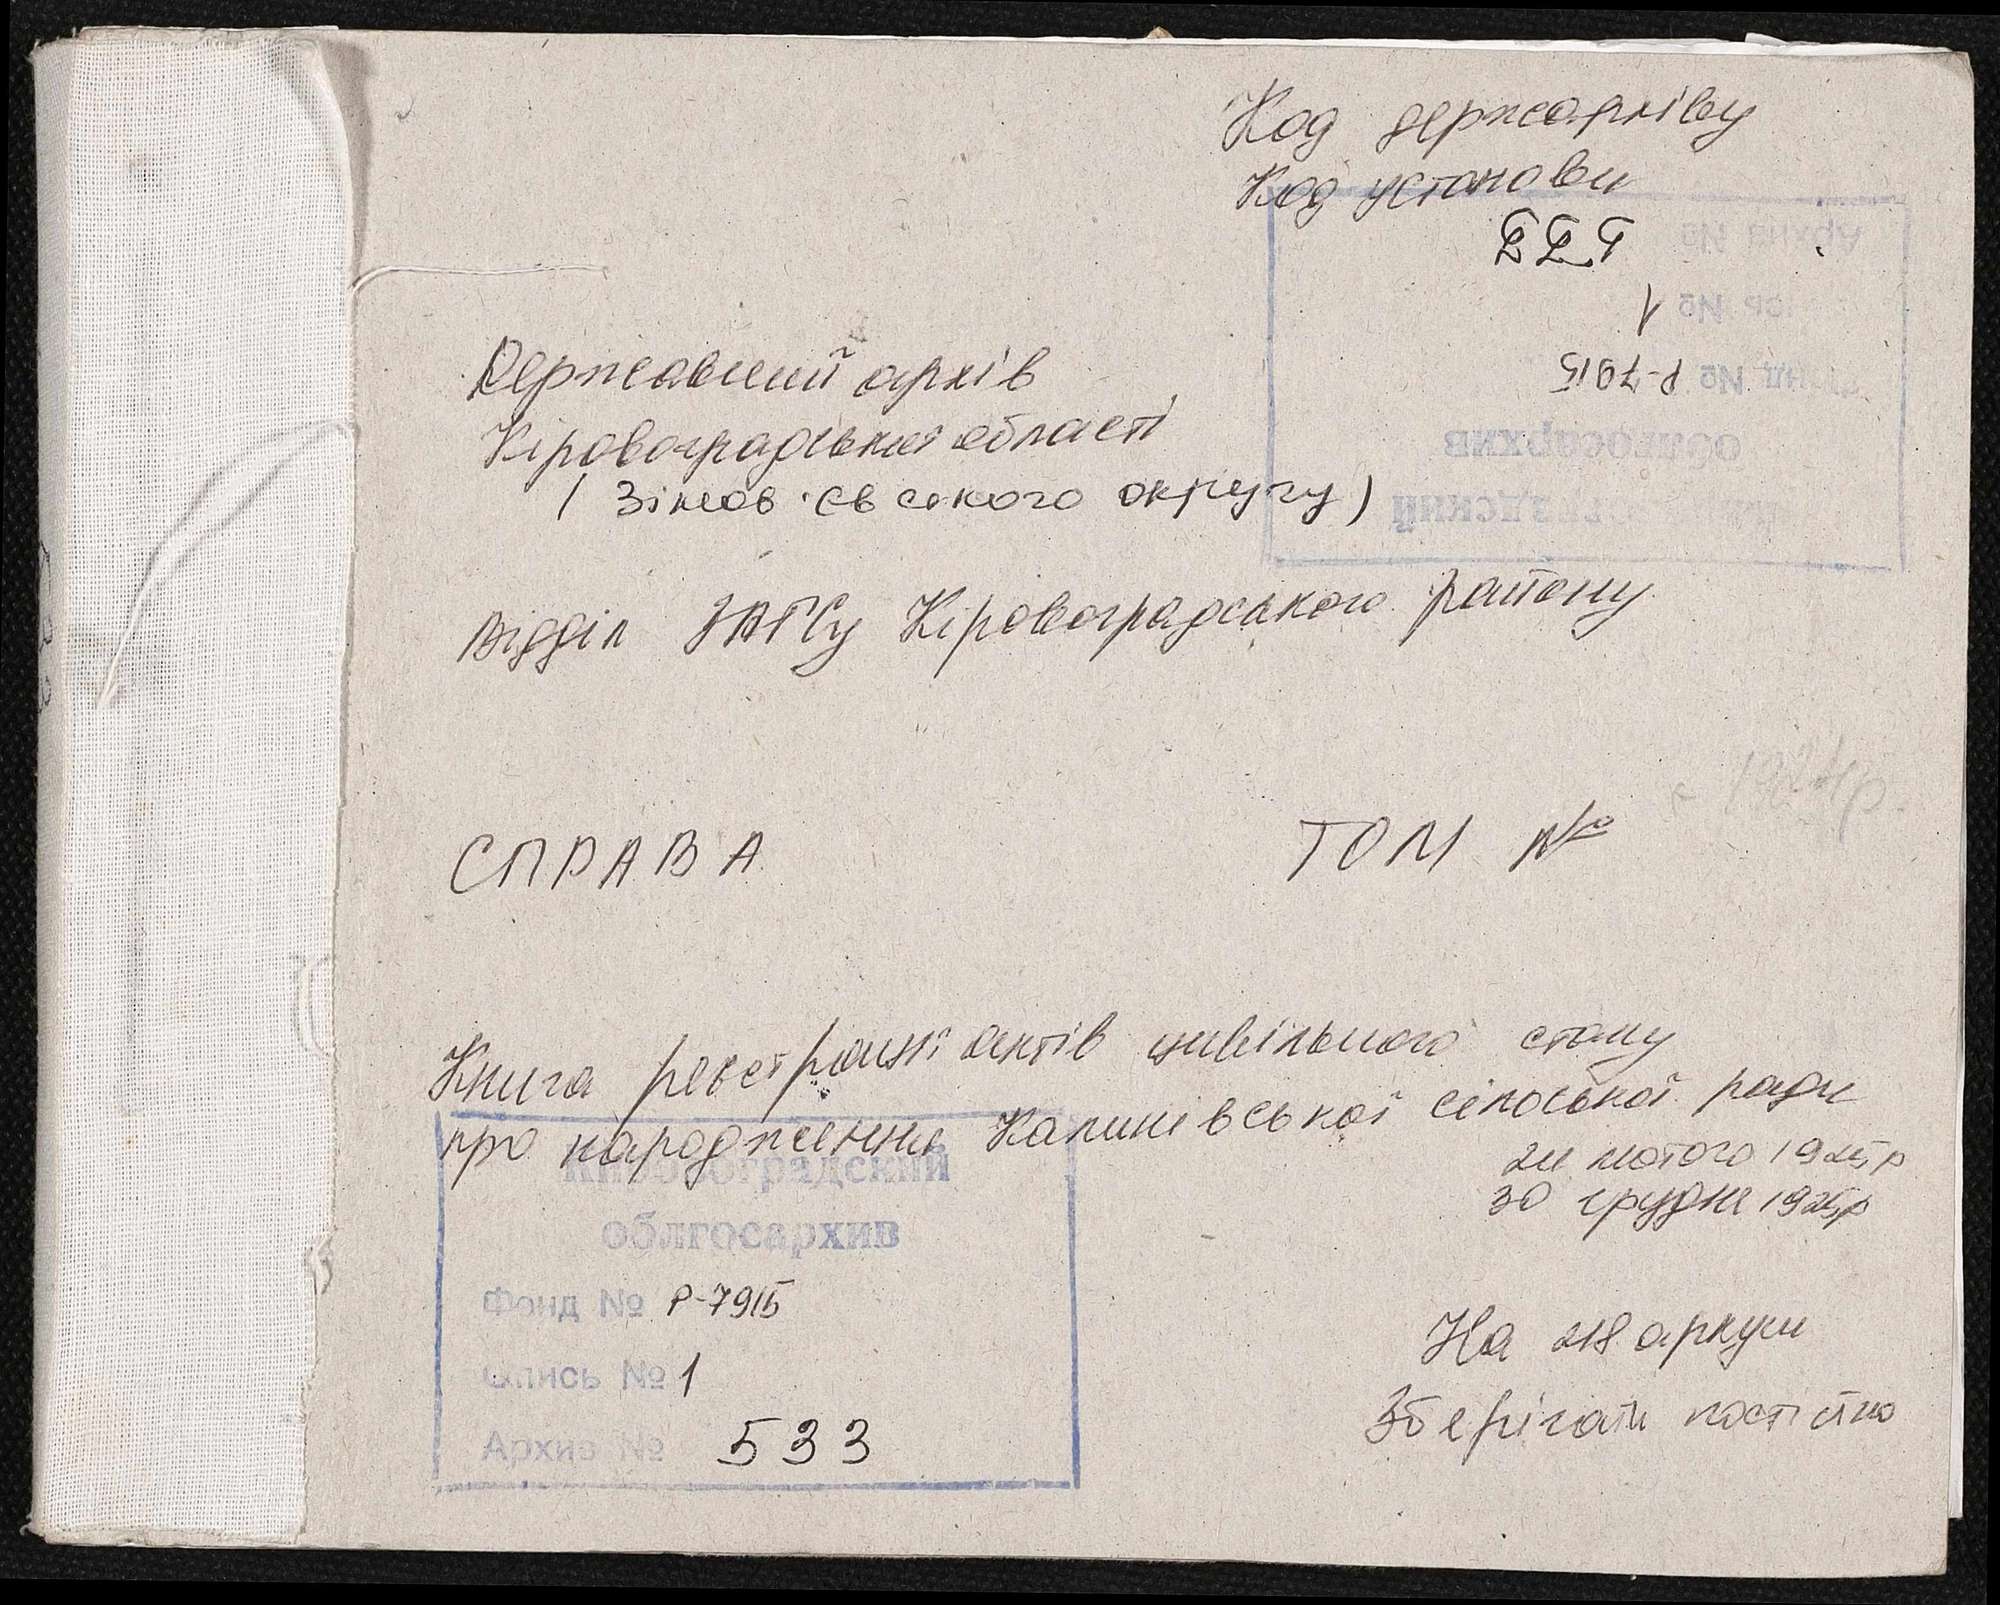 Код держархіву
Код установи
Архив № 533
Опись № 1
Фонд № Р-7915
облгосархив
Державний архів
Кіровоградської області
(Зінов'євського округу)
Відділ ЗАГСу Кіровоградського району
СПРАВА
ТОМ №
Книга реєстрації актів цивільного стану
про народження Калинівської сільської ради
лютого 1925 р
30 грудня 1925 р
Кировоградский
облгосархив
Фонд № Р-7915
Опись № 1
Архив № 533
На 218 аркуш
Зберігати постійно